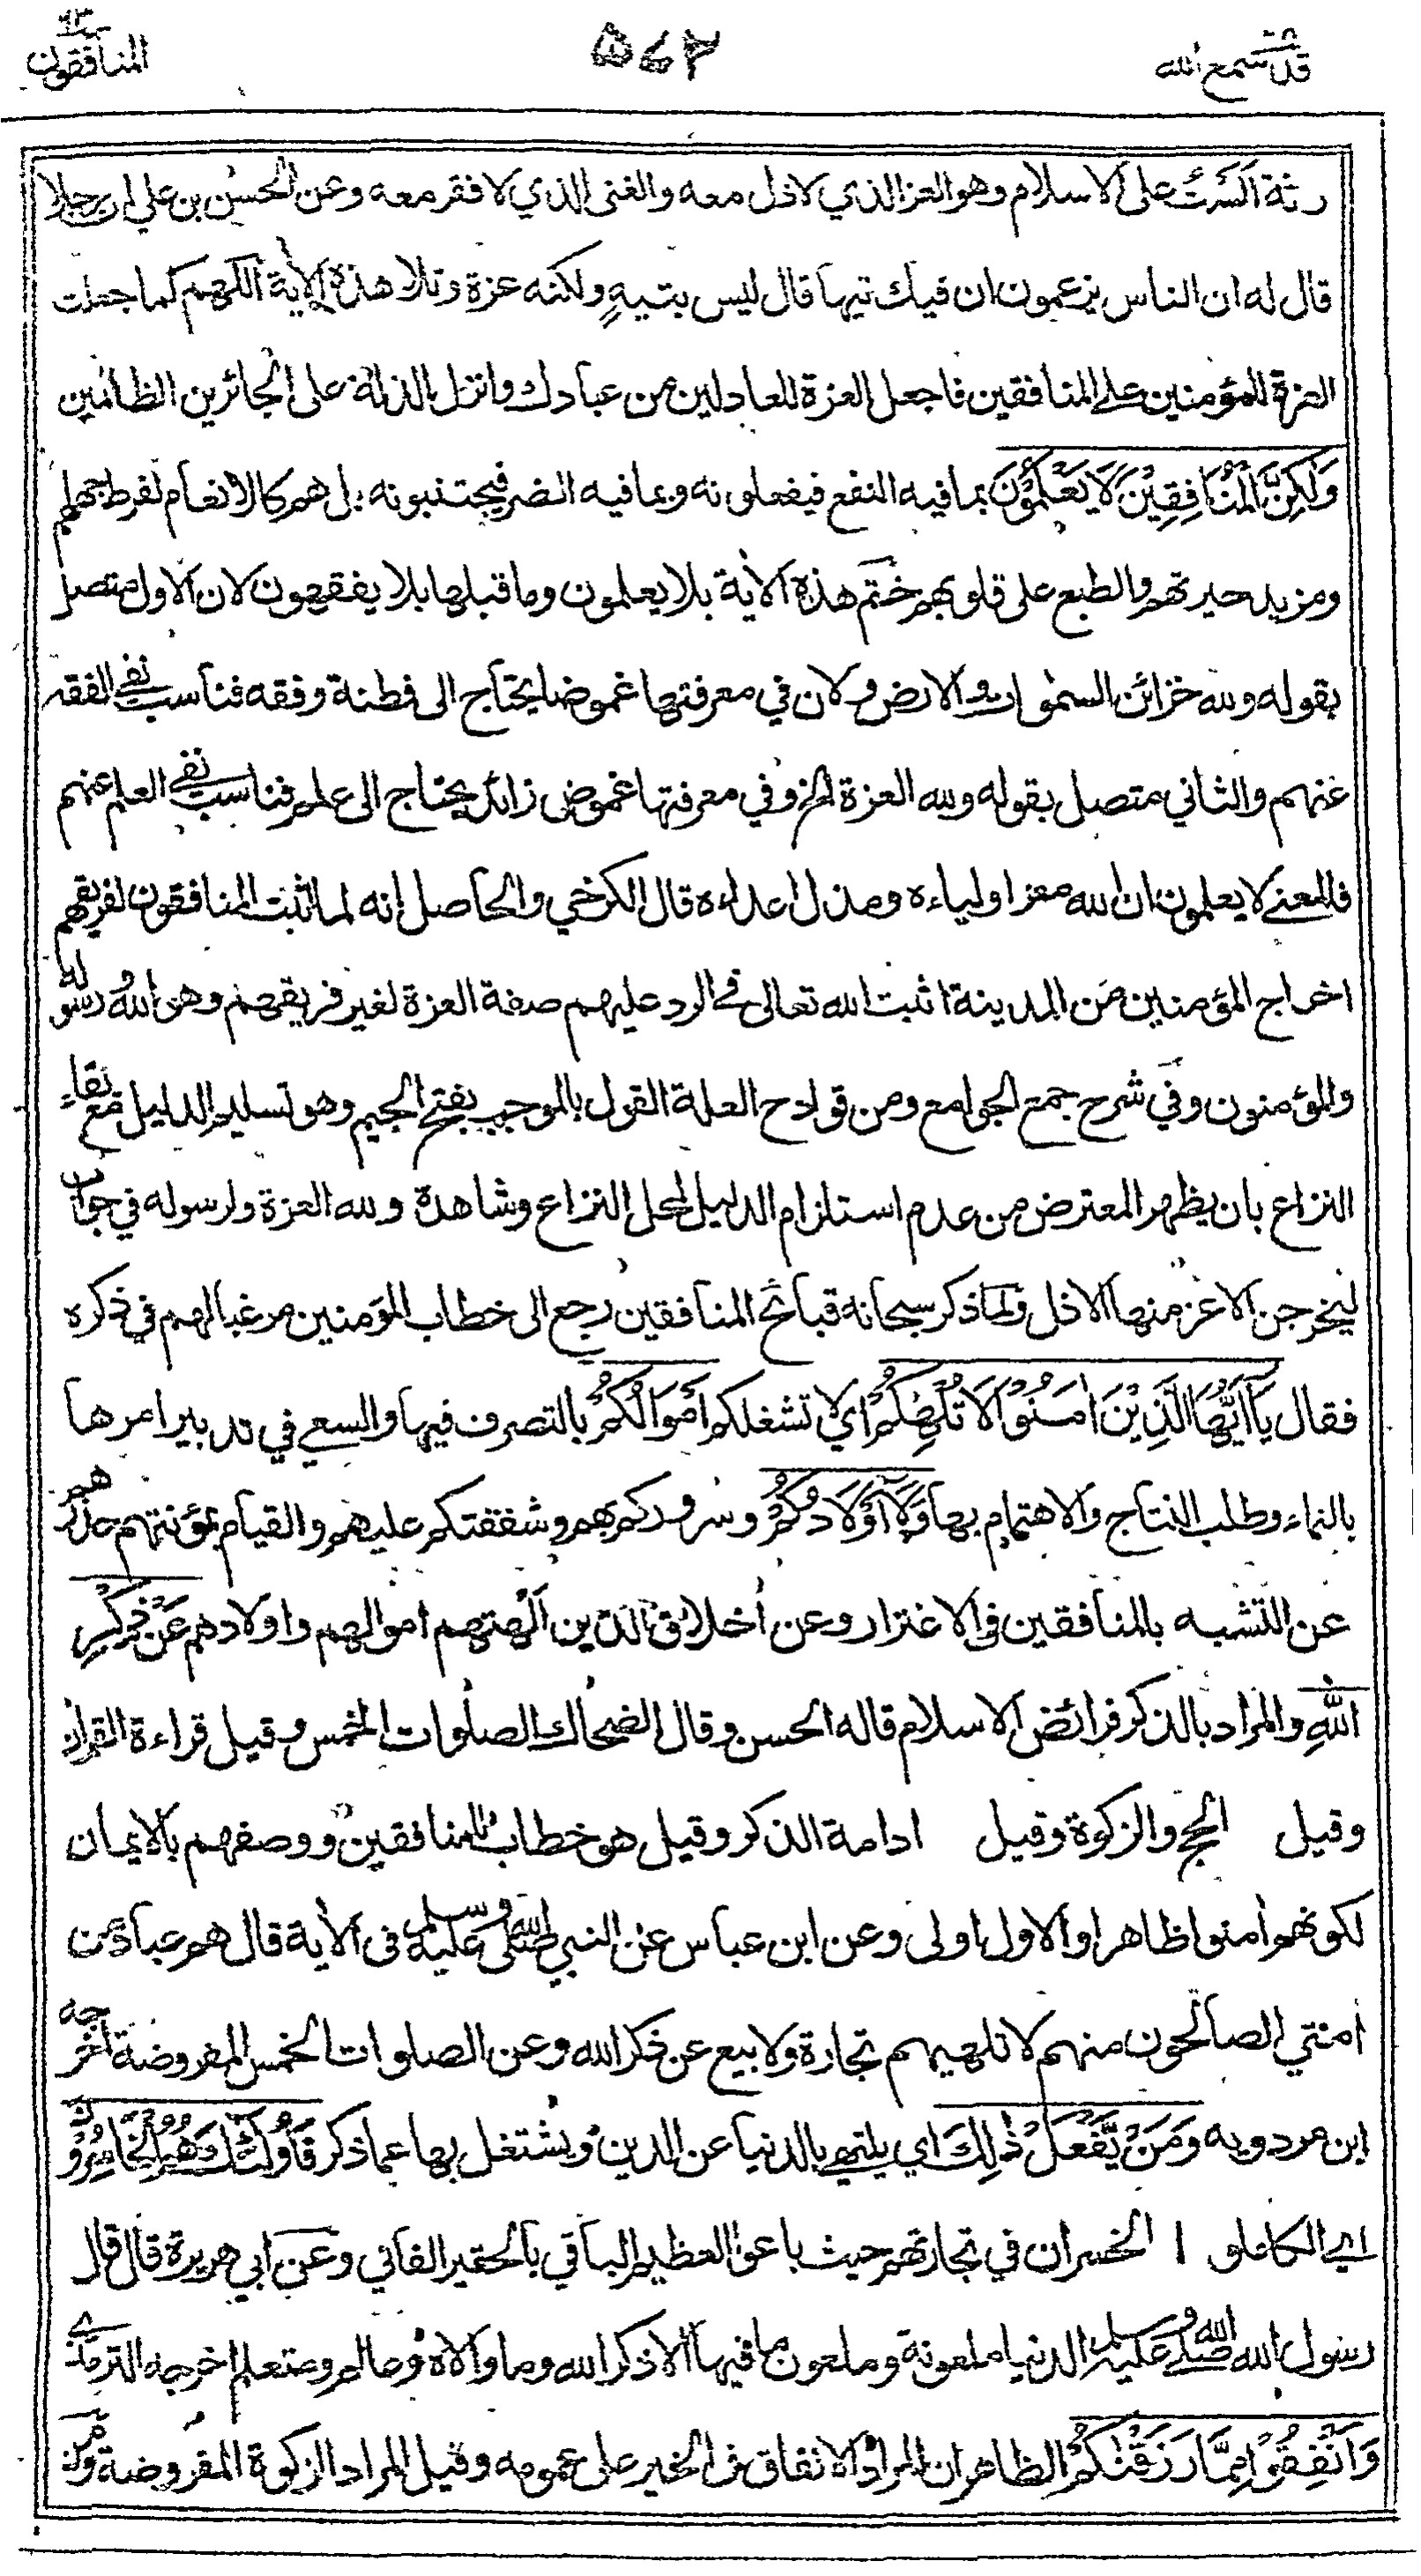 قد سمع الله
۵۶۲
المنافقون ٦٣
رثة الست على الاسلام وهو العز الذي لا ذل معه والغنى الذي لا فقر معه وعن الحسن بن علي ان رجلا
قال له ان الناس يزعمون ان فيك تيها قال ليس بتيه ولكنه عزة وتلا هذه الاية اللهم كما جعلت
العزة للمؤمنين على المنافقين فاجعل العزة للعادلين من عبادك وانزل الذلة على الجائرين الظالمين
وَلٰكِنَّ الْمُنَافِقِيْنَ لَا يَعْلَمُوْنَ بما فيه النفع فيفعلونه وبما فيه الضر فيجتنبونه بل هم كالانعام لفرط جهلهم
ومزيد حيرتهم والطبع على قلوبهم ختم هذه الاية بلا يعلمون وما قبلها بلا يفقهون لان الاول متصل
بقوله ولله خزائن السمٰوات والارض ولان في معرفتها غموضا يحتاج الى فطنة وفقه فناسب نفي الفقه
عنهم والثاني متصل بقوله ولله العزة الخ وفي معرفتها غموض زائد يحتاج الى علم فناسب نفي العلم عنهم
فالمعنى لا يعلمون ان الله معز اولياءه ومذل اعداءه قال الكرخي والحاصل انه لما اثبت المنافقون لفريقهم
اخراج المؤمنين من المدينة اثبت الله تعالى في الرد عليهم صفة العزة لغير فريقهم وهو الله ورسوله
والمؤمنون وفي شرح جمع الجوامع ومن قوادح العلة القول بالموجب بفتح الجيم وهو تسليم الدليل مع بقاء
النزاع بان يظهر المعترض من عدم استلزام الدليل لمحل النزاع وشاهدة ولله العزة ولرسوله في جواب
ليخرجن الاعز منها الاذل ولما ذكر سبحانه قبائح المنافقين رجع الى خطاب المؤمنين مرغبا لهم في ذكره
فقال يَآ اَيُّهَا الَّذِيْنَ اٰمَنُوْا لَا تُلْهِكُمْ اي لا تشغلكم اَمْوَالُكُمْ بالتصرف فيها والسعي في تدبير امرها
بالنماء وطلب النتاج والاهتمام بها وَلَآ اَوْلَادُكُمْ وسروركم بهم وشفقتكم عليهم والقيام بمؤنتهم حذرهم
عن التشبه بالمنافقين في الاغترار وعن اخلاق الذين الهتهم اموالهم واولادهم عَنْ ذِكْرِ
اللّٰهِ والمراد بالذكر فرائض الاسلام قاله الحسن وقال الضحاك الصلوات الخمس وقيل قراءة القران
وقيل الحج والزكوة وقيل ادامة الذكر وقيل هو خطاب للمنافقين ووصفهم بالايمان
لكونهم اٰمنوا ظاهرا والاول اولى وعن ابن عباس عن النبي صلى الله عليه وسلم في الاية قال هم عباد من
امتي الصالحون منهم لا تلهيهم تجارة ولا بيع عن ذكر الله وعن الصلوات الخمس المفروضة اخرجه
ابن مردويه وَمَنْ يَّفْعَلْ ذٰلِكَ اي يلتهي بالدنيا عن الدين ويشتغل بها عما ذكر فَاُولٰٓئِكَ هُمُ الْخَاسِرُوْنَ
اي الكاملوا الخسران في تجارتهم حيث باعوا العظيم الباقي بالحقير الفاني وعن ابي هريرة قال قال
رسول الله صلى الله عليه وسلم الدنيا ملعونة وملعون ما فيها الا ذكر الله وما والاه وعالم ومتعلم اخرجه الترمذي
وَاَنْفِقُوْا مِمَّا رَزَقْنٰكُمْ الظاهر ان المراد الانفاق في الخير على عمومه وقيل المراد الزكوة المفروضة ومن